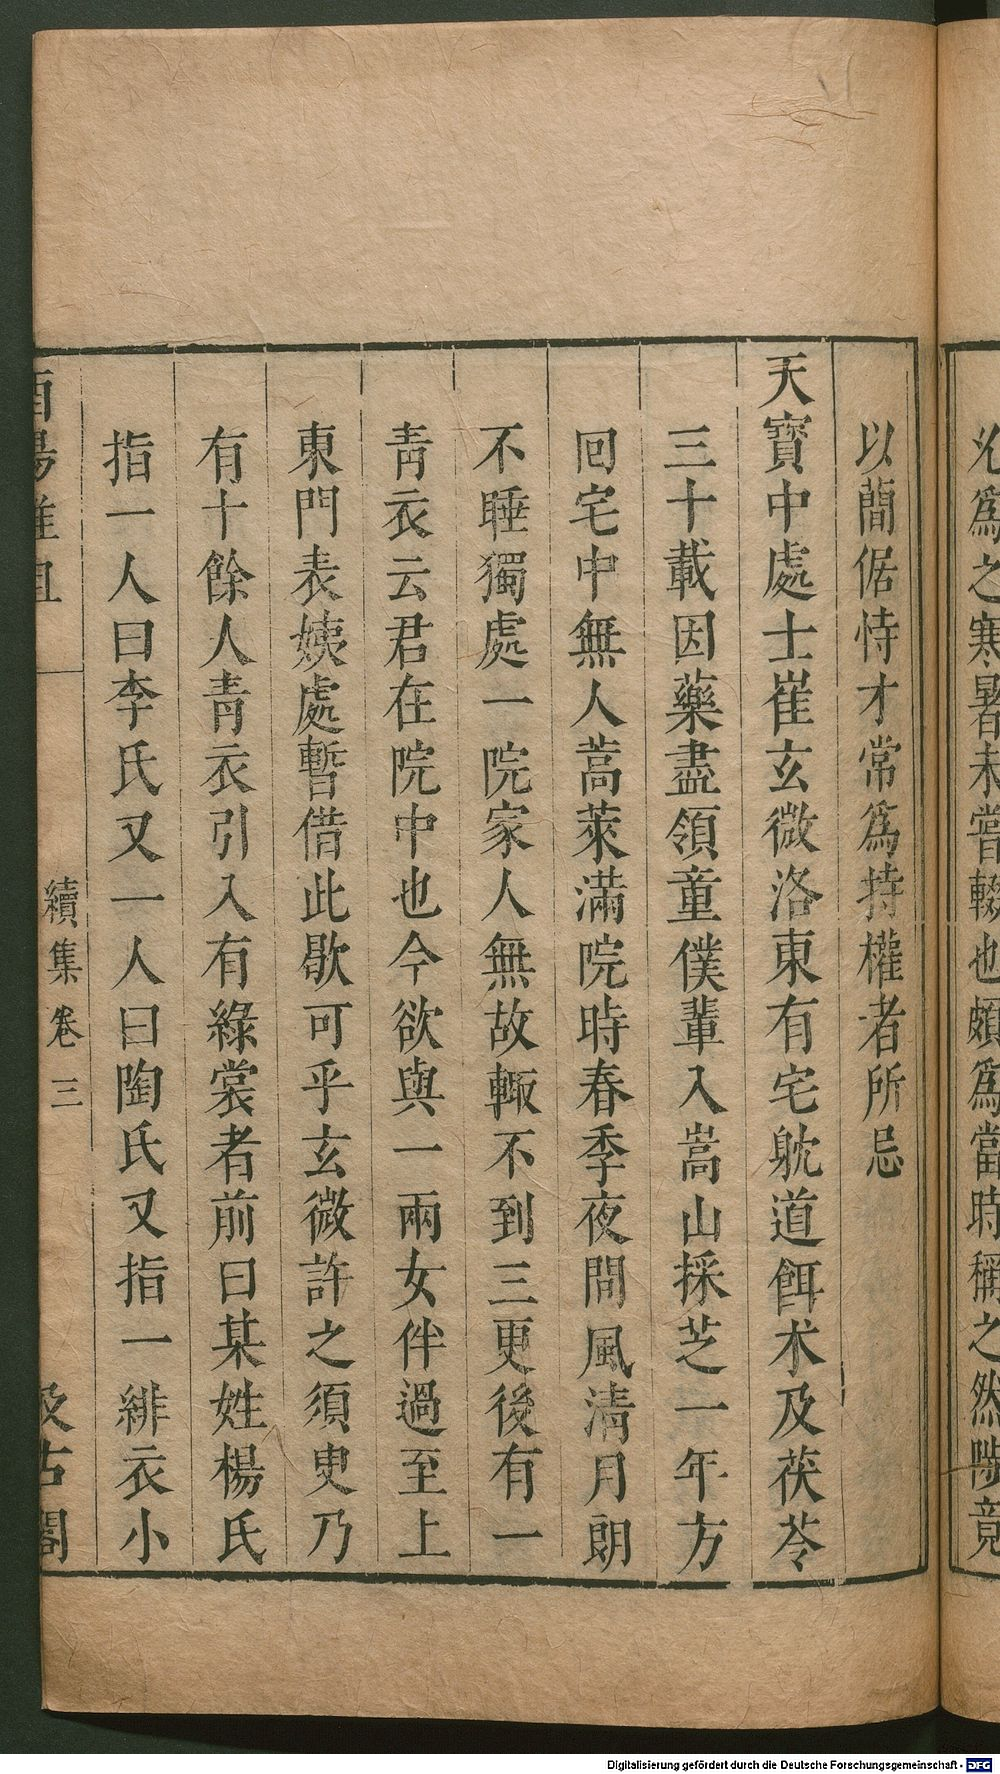 爲之寒暑未嘗輟也頗爲當時稱之然陟竟
以蕳倨恃才常爲持權者所忌
天寶中處士崔玄微洛東有宅躭道餌术及茯苓
三十載因藥盡領童僕輩入嵩山採芝一年方
回宅中無人蒿萊滿院時春季夜間風清月朗
不睡獨處一院家人無故輙不到三更後有一
靑衣云君在院中也今欲與一兩女伴過至上
東門表姨處暫借此歇可乎玄微許之須臾乃
有十餘人靑衣引入有綠裳者前曰某姓楊氏
指一人曰李氏又一人曰陶氏又指一緋衣小
酉陽雜俎
續集卷三
汲古閣
Digitalisierung gefördert durch die Deutsche Forschungsgemeinschaft - DFG